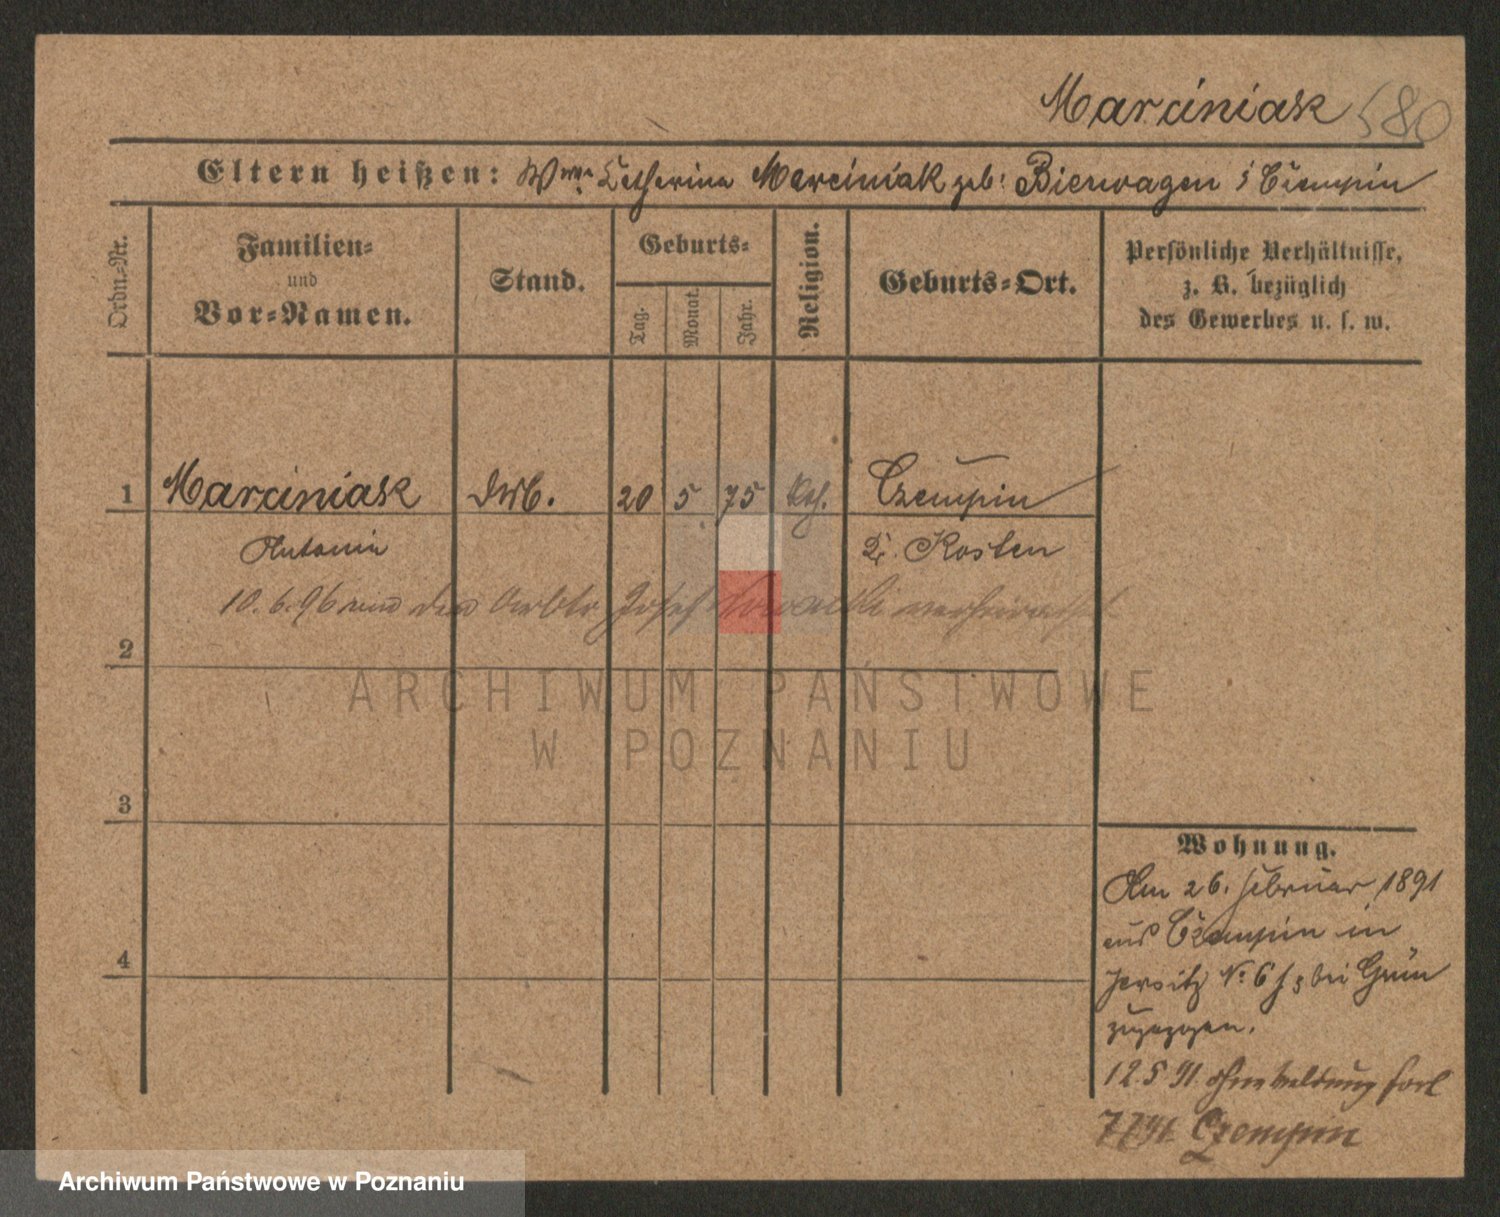 Marciniak 580
Eltern heißen: Wwe Catharina Marciniak geb: Bierwagen i Czempin
Ordn.-Nr.
Familien-
und
Vor-Namen.
Stand.
Geburts-
Tag.
Monat.
Jahr.
Religion.
Geburts-Ort.
Persönliche Verhältnisse,
z. B. bezüglich
des Gewerbes u. s. w.
1 Marciniak 20 5 75 Kath. Czempin
Antonie Kosten
10.6.96 den Arbtr Josef verheirathet
2
ARCHIWUM PAŃSTWOWE
W POZNANIU
3
4
Wohnung.
Am 26. Februar 1891
aus Czempin in
Jersitz No 6 bei Grün
zugezogen.
12.5.91. ohne Meldung fort
Czempin
Archiwum Państwowe w Poznaniu